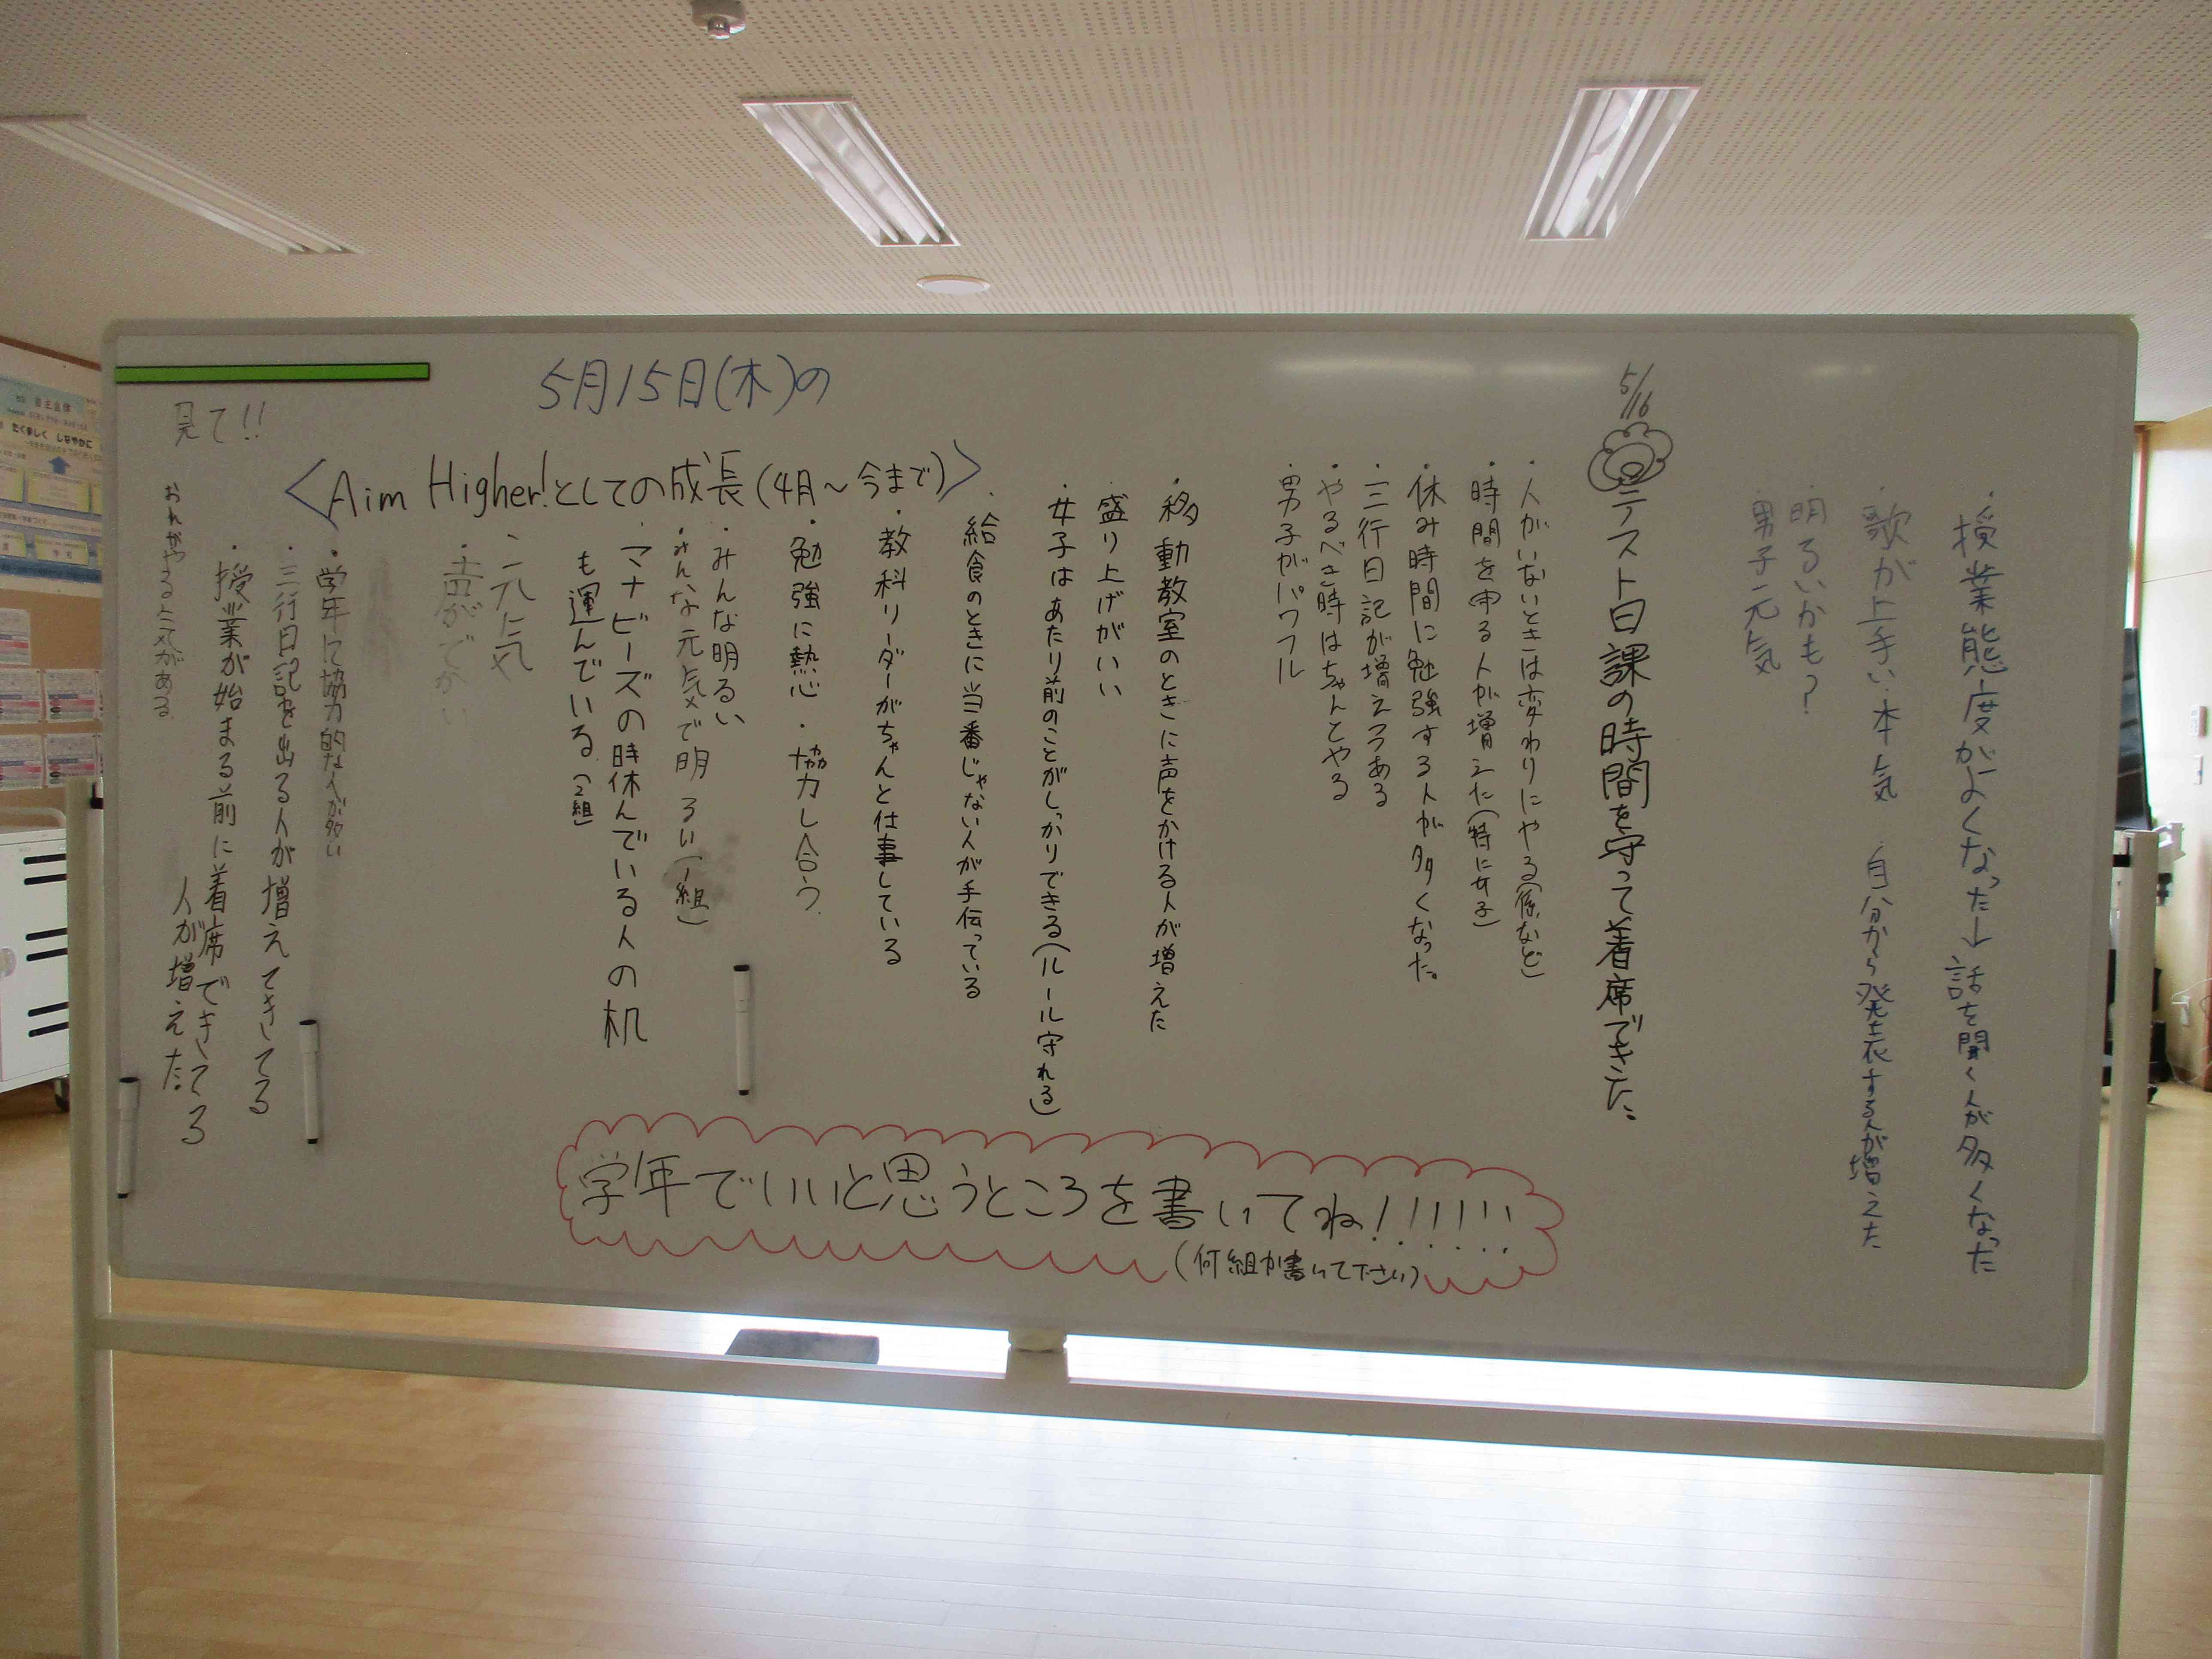 5月15日(木)の
見て!!
<Aim Higher!としての成長(4月～今まで)>
・授業態度がよくなった→話を聞く人が多くなった
・歌が上手い・本気 自分から発表する人が増えた
・明るいかも?
・男子元気
5/16
テスト日課の時間を守って着席できた。
・人がいないときは変わりにやる(係など)
・時間を守る人が増えた(特に女子)
・休み時間に勉強する人が多くなった。
・三行日記が増えつつある
・やるべき時はちゃんとやる
・男子がパワフル
・移動教室のときに声をかける人が増えた
・盛り上げがいい
・女子はあたり前のことがしっかりできる(ルール守れる)
・給食のときに当番じゃない人が手伝っている
・教科リーダーがちゃんと仕事している
・勉強に熱心・協力し合う
・みんな明るい
・みんな元気で明るい(1組)
・マナビーズの時休んでいる人の机
も運んでいる(2組)
・元気
・声がでかい
・学年に協力的な人が多い
・三行日記を出る人が増えてきてる
・授業が始まる前に着席できてる
人が増えた。
学年でいいと思うところを書いてね!!!!!!
(何組か書いて下さい)